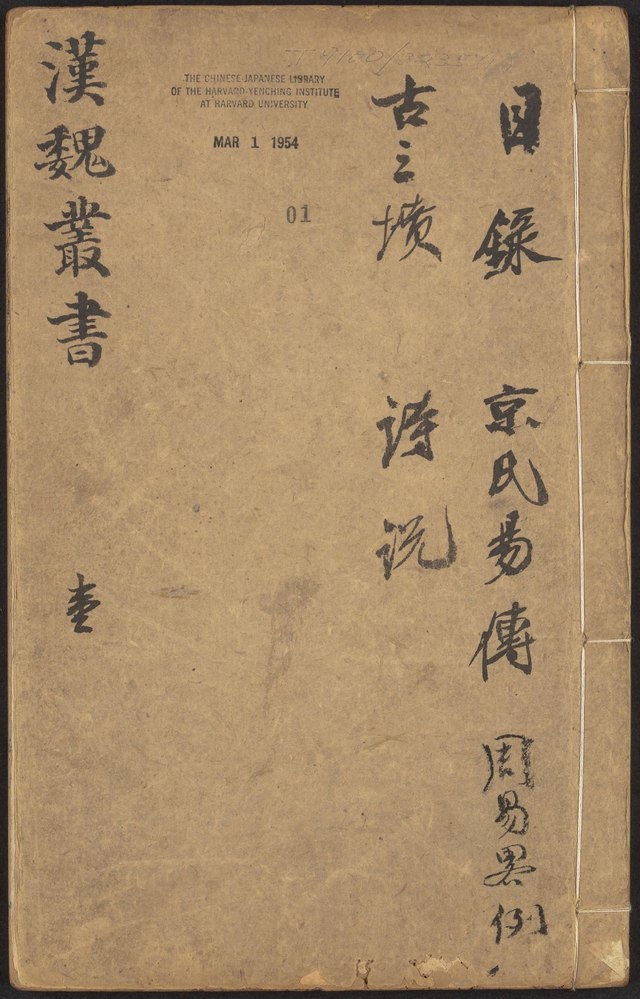 目錄 京氏易傳 周易畧例
古三墳 詩說
漢魏叢書 壹
THE CHINESE-JAPANESE LIBRARY
OF THE HARVARD-YENCHING INSTITUTE
AT HARVARD UNIVERSITY
MAR 1 1954
01